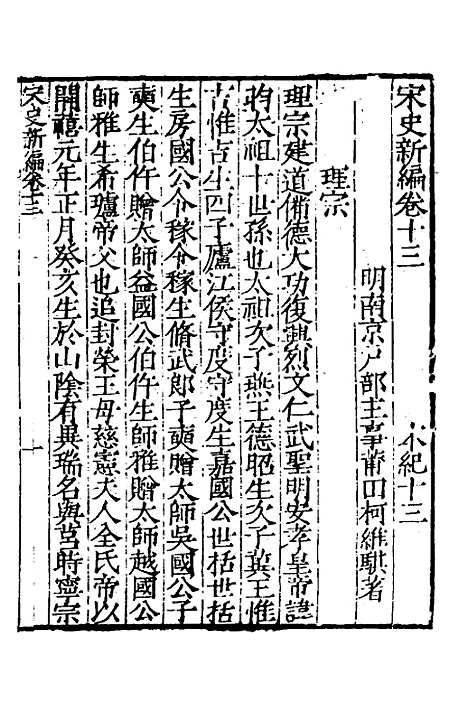 宋史新編卷十三　　本紀十三
明南京戶部主事莆田柯維騏著
理宗
理宗建道備德大功復興烈文仁武聖明安孝皇帝諱
昀太祖十世孫也太祖次子燕王德昭生次子冀王惟
吉惟吉生四子廬江侯守度守度生嘉國公世括世括
生房國公令稼令稼生脩武郎子奭贈太師吳國公子
奭生伯仵贈太師益國公伯仵生師雅贈太師越國公
師雅生希瓐帝父也追封榮王母慈憲夫人全氏帝以
開禧元年正月癸亥生於山陰有異瑞名與莒時寧宗
宋史新編卷十三　　一